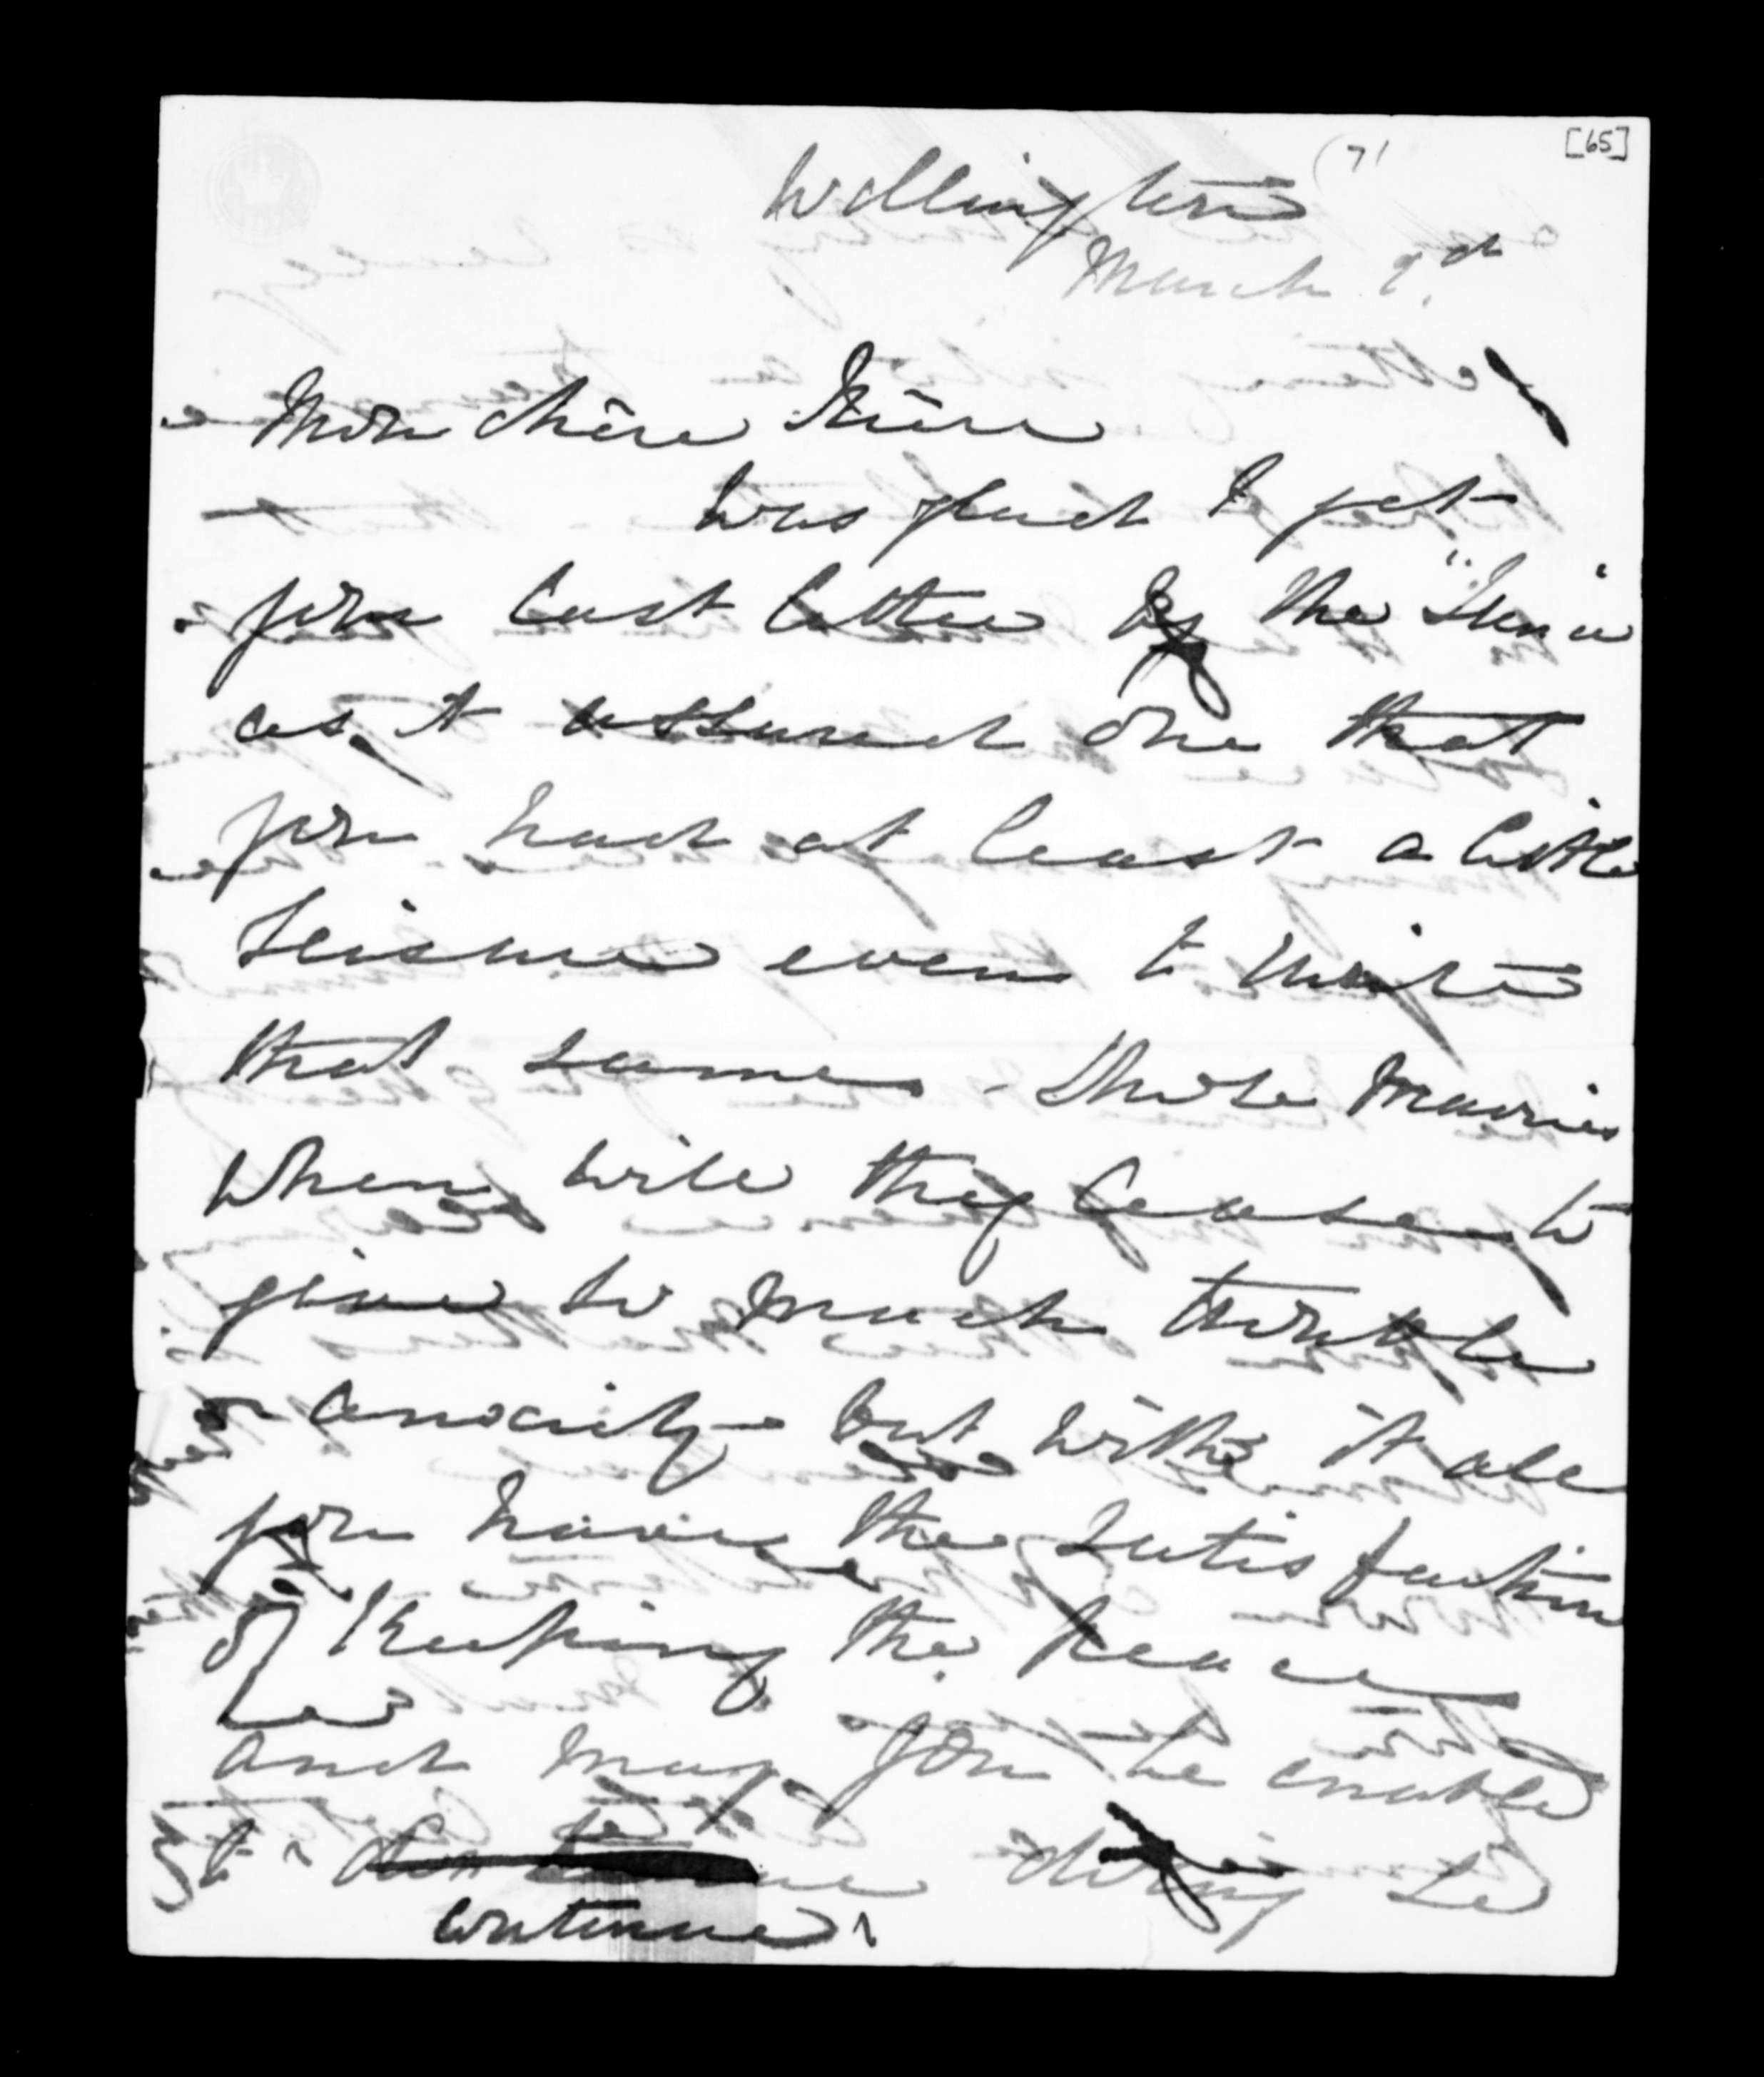 [65]
(71
Wellington
March 9th
Mon chère Frère
Was glad I get
your last letter by the "Luna"
as it assured one that
you had at least a little
Leisure even to write
that same. Those Maories
when will they cease to
give so much trouble
& anxiety - but with it all
you have the satisfaction
of Keeping the Peace
and may you be enabled
to doing so
continue